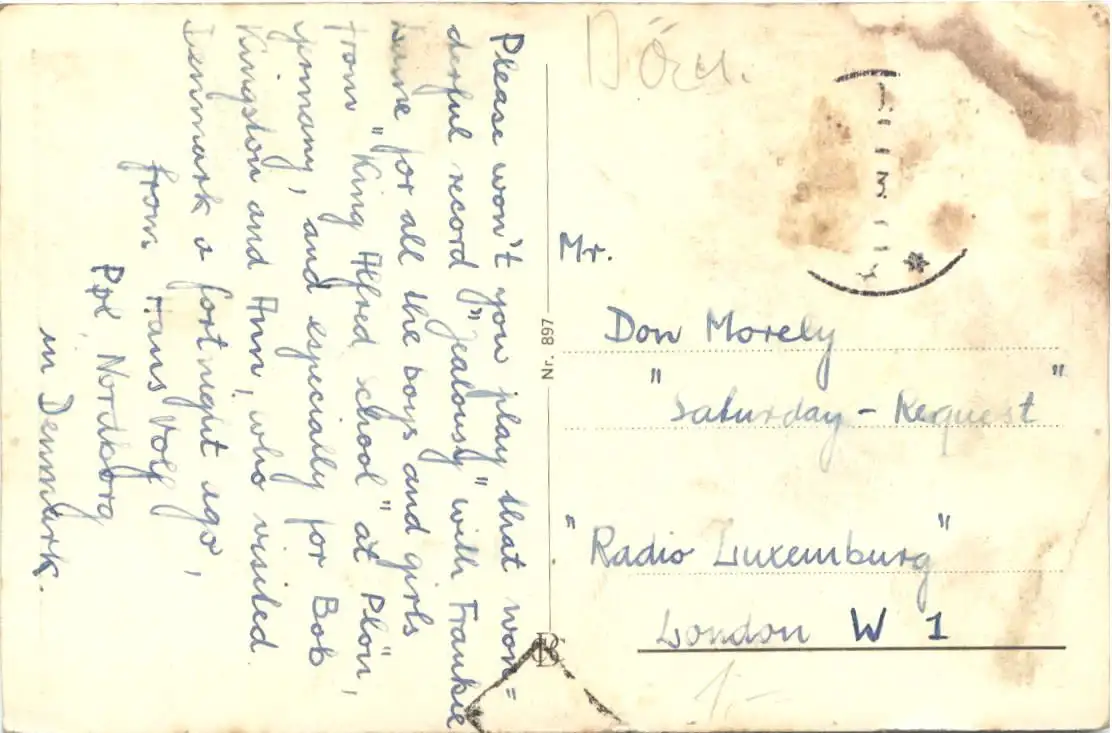 Please won't you play that won=
derful record "Jealousy" with Frankie
Laine for all the boys and girls
from "King Alfred school" at Plön,
yrmany, and especially for Bob
Kingston and Ann, who visited
Denmark a fortnight ago,
from Hans Volf
Ppl, Nordborg
in Denmark
Nr. 897
Mr.
Don Morely
"Saturday - Request"
"Radio Luxemburg"
London W 1
1.-